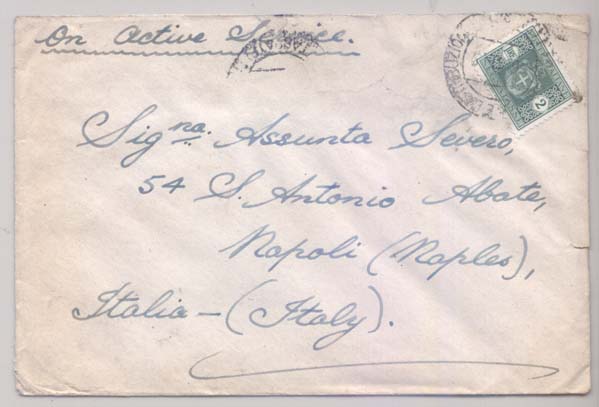 On Active Service.
Signa. Assunta Severo,
54 S. Antonio Abate,
Napoli (Naples),
Italia - (Italy).
2